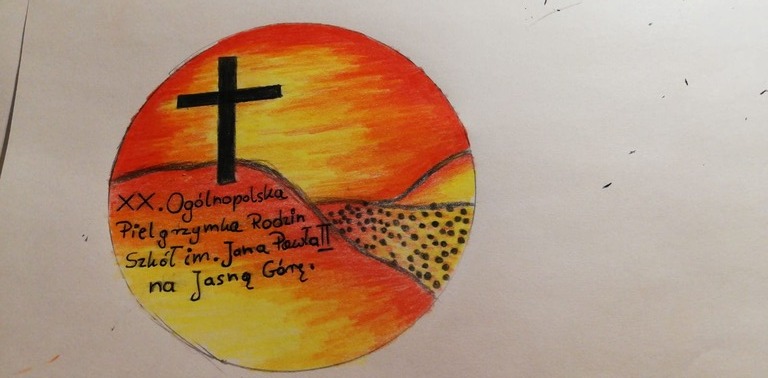 XX. Ogólnopolska
Pielgrzymka Rodzin
Szkół im. Jana Pawła II
na Jasną Górę.